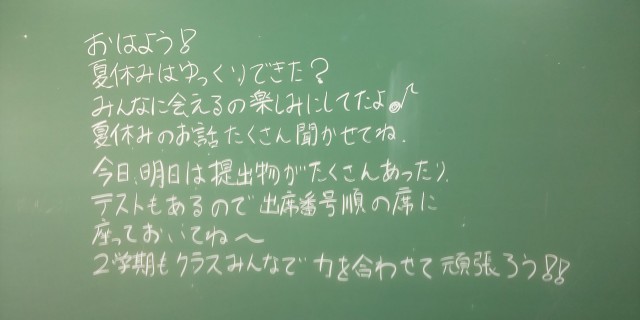 おはよう!
夏休みはゆっくりできた?
みんなに会えるの楽しみにしてたよ♪
夏休みのお話たくさん聞かせてね.
今日、明日は提出物がたくさんあったり、
テストもあるので出席番号順の席に
座っておいてね〜
2学期もクラスみんなで力を合わせて頑張ろう!!